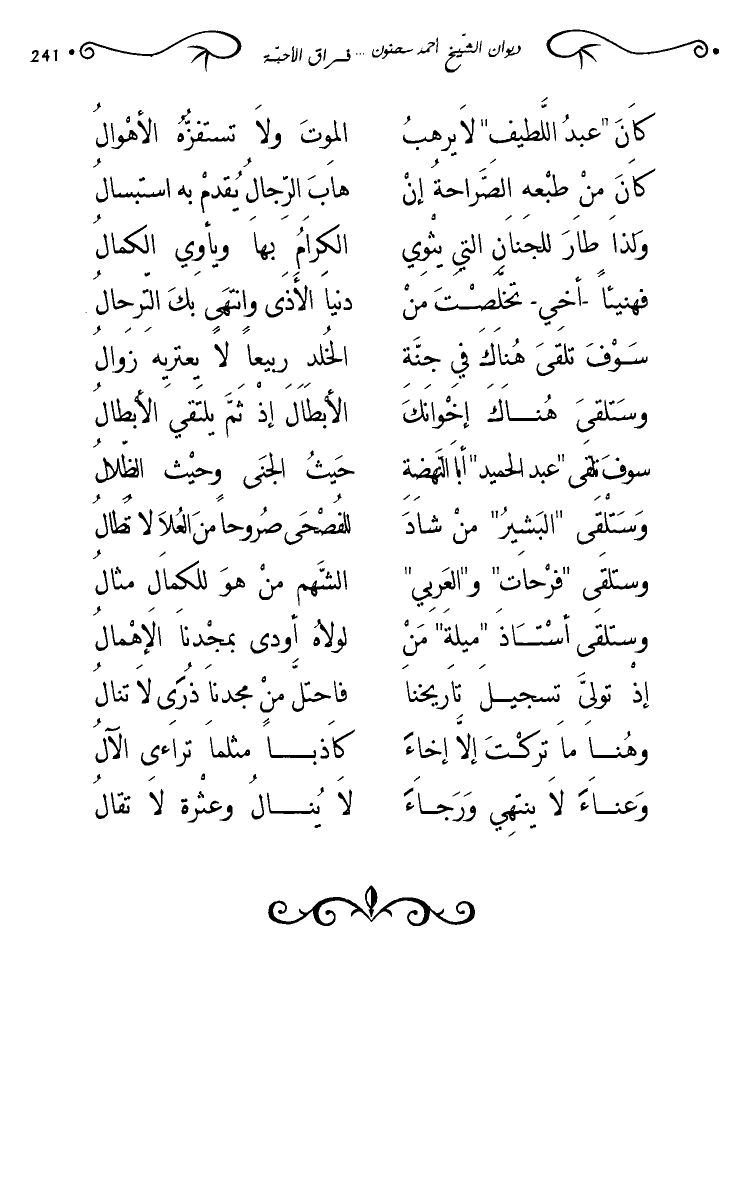 ديوان الشّيخ أحمد سحنون ... فراق الأحبّة 241
كَانَ "عبدُ اللَّطيف" لاَ يرهبُ الموتَ ولاَ تستفزُّهُ الأهْوالُ
كَانَ مِنْ طبْعِه الصَّراحةُ إنْ هابَ الرّجالُ يُقدمْ به استبسالُ
وَلذا طارَ للجنانِ التي يثْوِي الكرامُ بها ويأوي الكمالُ
فهنيئاً -أخي- تخلَّصْتَ مِنْ دنيا الأَذَى وانتهَى بكَ التّرحالُ
سَوْفَ تلقَى هُناكَ في جنَّةِ الخُلد ربيعاً لاَ يعتريهِ زوالُ
وسَتلقَى هُناكَ إخْوانَكَ الأبْطَالَ إذْ ثَمَّ يلتقي الأبطالُ
سوفَ تلقى "عبد الحميد" أبا النّهضة حَيثُ الجَنَى وحيْث الظّلالُ
وَسَتَلْقَى "البَشيرُ" منْ شادَ للفصْحَى صُروحاً منَ العُلاَ لا تُطالُ
وستلقى "فرْحات" و"العَربي" الشَّهم منْ هوَ للكمالِ مثالُ
وستلقى أسْتَاذَ "ميلةَ" مَنْ لولاهُ أودى بمجْدنا الإهْمالُ
إذْ تولىَّ تسجيلَ تاريخنا فاحتلَّ منْ مجدنا ذُرًى لا تنالُ
وهُنا ما تركْتَ إلاَّ إخاءً كاذباً مثلما تراءى الآلُ
وَعناءً لاَ ينتهِي وَرَجاءً لاَ يُنالُ وعثْرة لاَ تقالُ